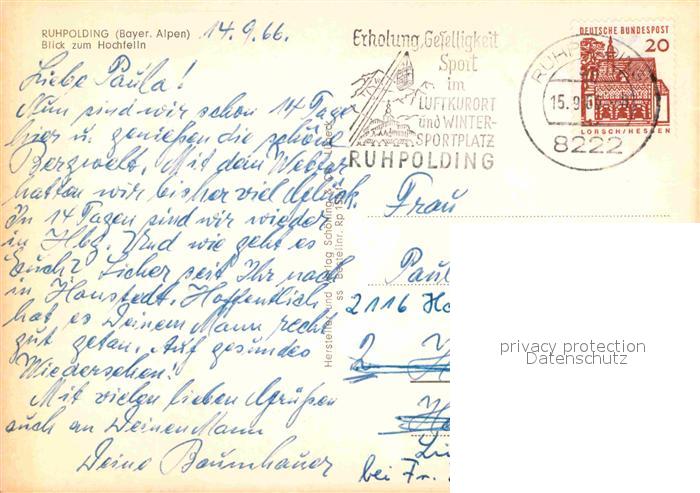 RUHPOLDING (Bayer. Alpen)
Blick zum Hochfelln
14.9.66.
Liebe Paula!
Nun sind wir schon 14 Tage
hier u. genießen die schöne
Bergwelt. Mit dem Wetter
hatten wir bisher viel Glück.
In 14 Tagen sind wir wieder
in Hbg. Und wie geht es
Euch? Sicher seit Ihr noch
in Hanstedt. Hoffentlich
hat es Deinem Mann recht
gut getan. Auf gesundes
Wiedersehen!
Mit vielen lieben Grüßen
auch an Deinen Mann
Deine Baumhauer
Hersteller und Verlag Schöning &
Bestellnr. Rp
Erholung, Geselligkeit
Sport
im
LUFTKURORT
und WINTER-
SPORTPLATZ
RUHPOLDING
RUHPOLDING
15.9.
8222
DEUTSCHE BUNDESPOST
20
LORSCH/HESSEN
Frau
Paul
2116 Ha
2 H
bei Fr.
privacy protection
Datenschutz